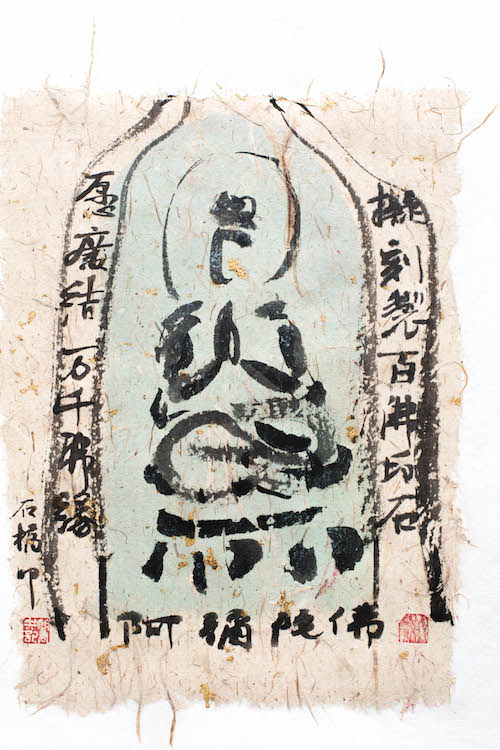 擬刻製百佛印石
愿廣结百千佛緣
石橋
阿彌陀佛